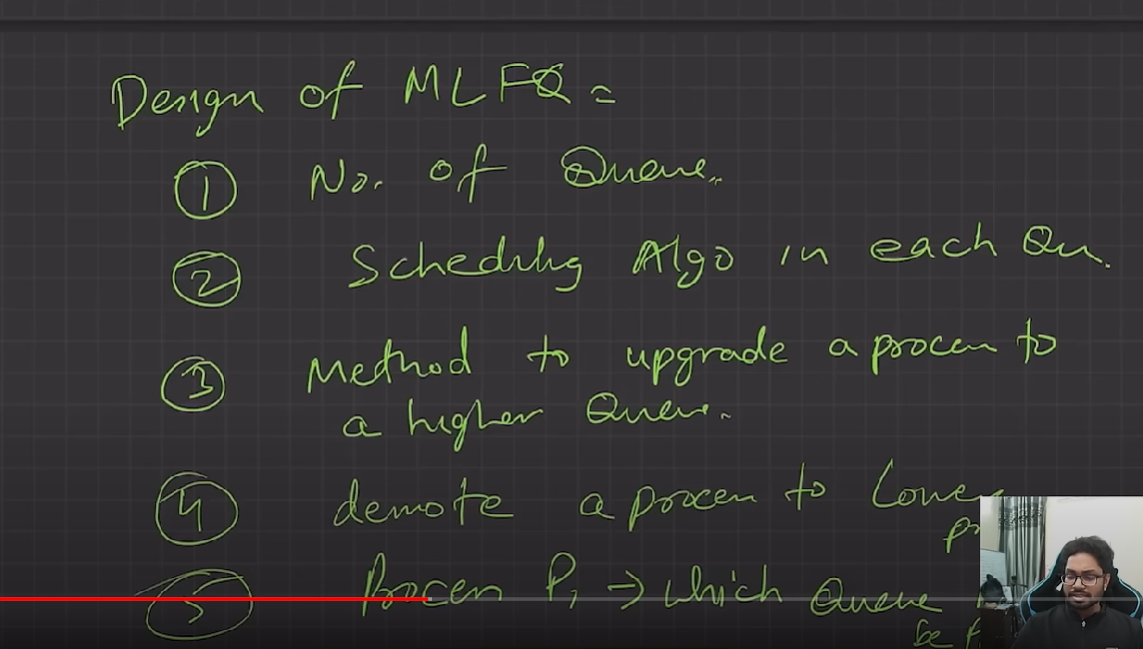 Design of MLFQ =
① No. of Queue.
② Scheduling Algo in each Qu.
③ Method to upgrade a process to
a higher Queue.
④ demote a process to Lower
⑤ Process P₁ → which Queue
be